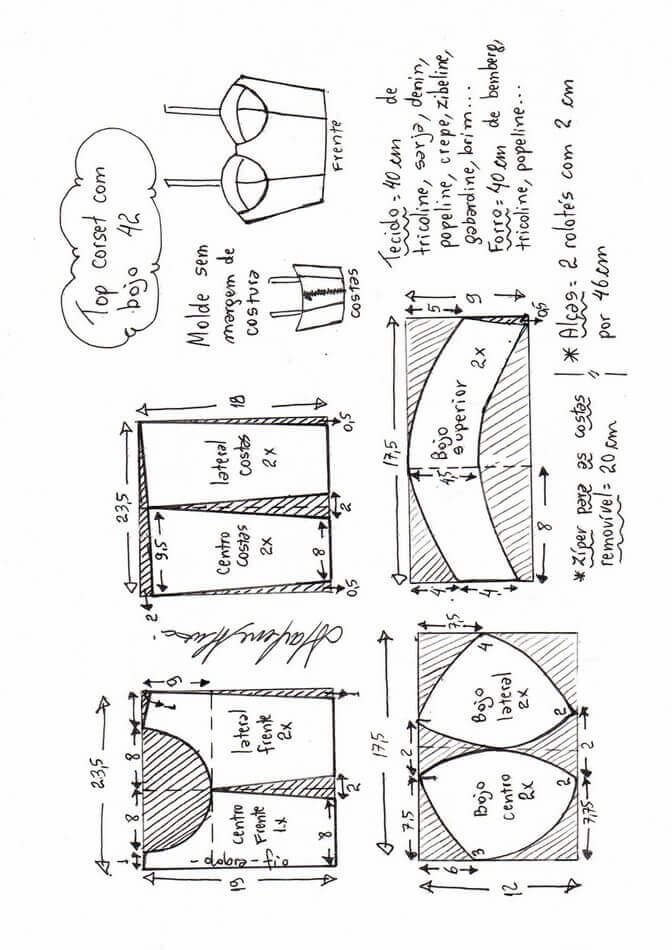 Top corset com
bojo 42
Molde sem
margem de
costura
costas
Frente
Tecido = 40 cm de
tricoline, sarja, denin,
popeline, crepe, zibeline,
gabardine, brim...
Forro = 40 cm de bemberg,
tricoline, popeline...
* Alças = 2 rolotês com 2 cm
por 46 cm
* Zíper para as costas
removível = 20 cm
23,5
18
2
9,5
Centro
costas
2x
lateral
costas
2x
0,5
8
2
0,5
17,5
5
9
Bojo
superior
2x
4,5
4
4
8
0,5
23,5
1
8
8
1
9
19
Centro
Frente
1x
dobra - fio
lateral
frente
2x
8
2
1
17,5
7,5
2
7,5
6
12
1
1
2
2
3
4
Bojo
centro
2x
Bojo
lateral
2x
7,75
2